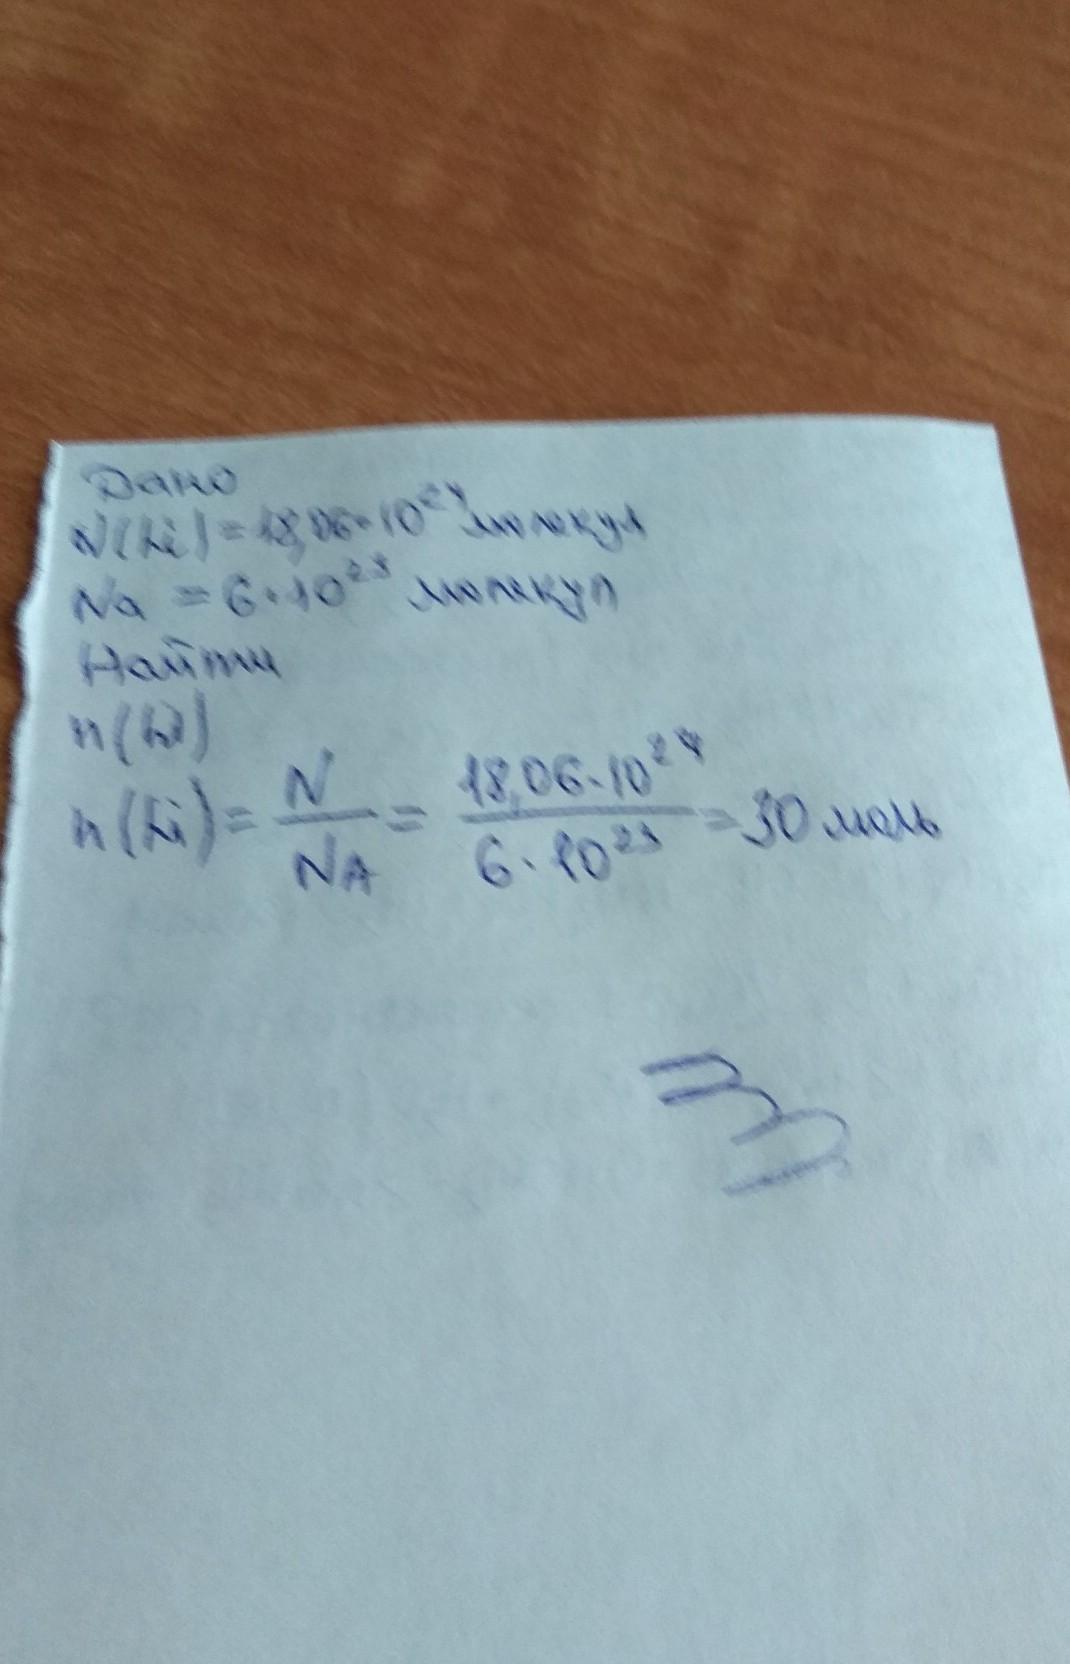 Дано
N(Li) = 18,06·10²⁴ молекул
Na = 6·10²³ молекул
Найти
n(Li)
n(Li) = N/NA = 18,06·10²⁴/6·10²³ = 30 моль